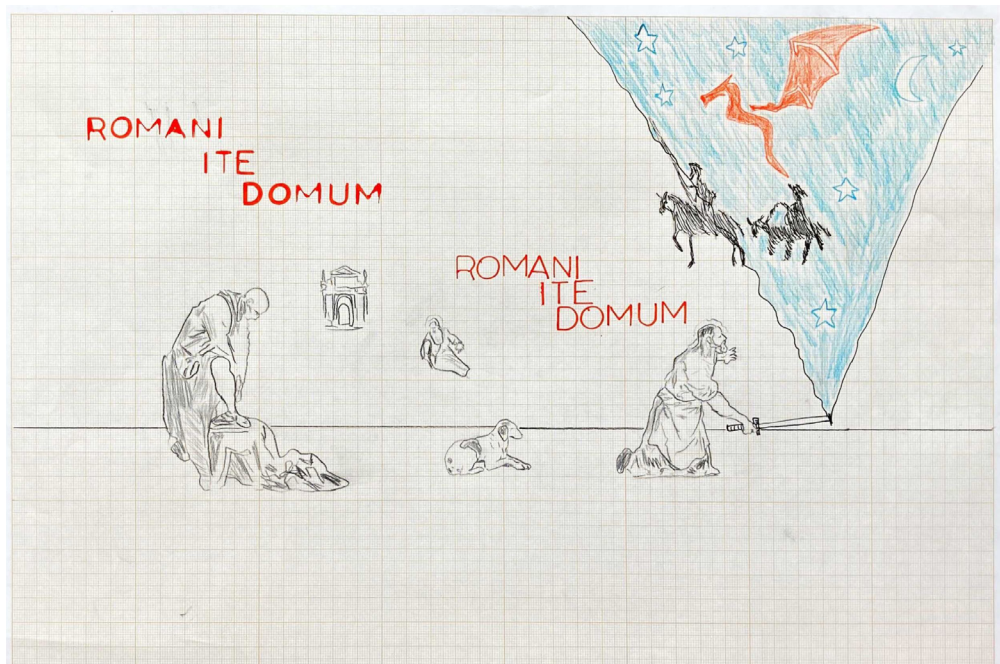 ROMANI
ITE
DOMUM
ROMANI
ITE
DOMUM